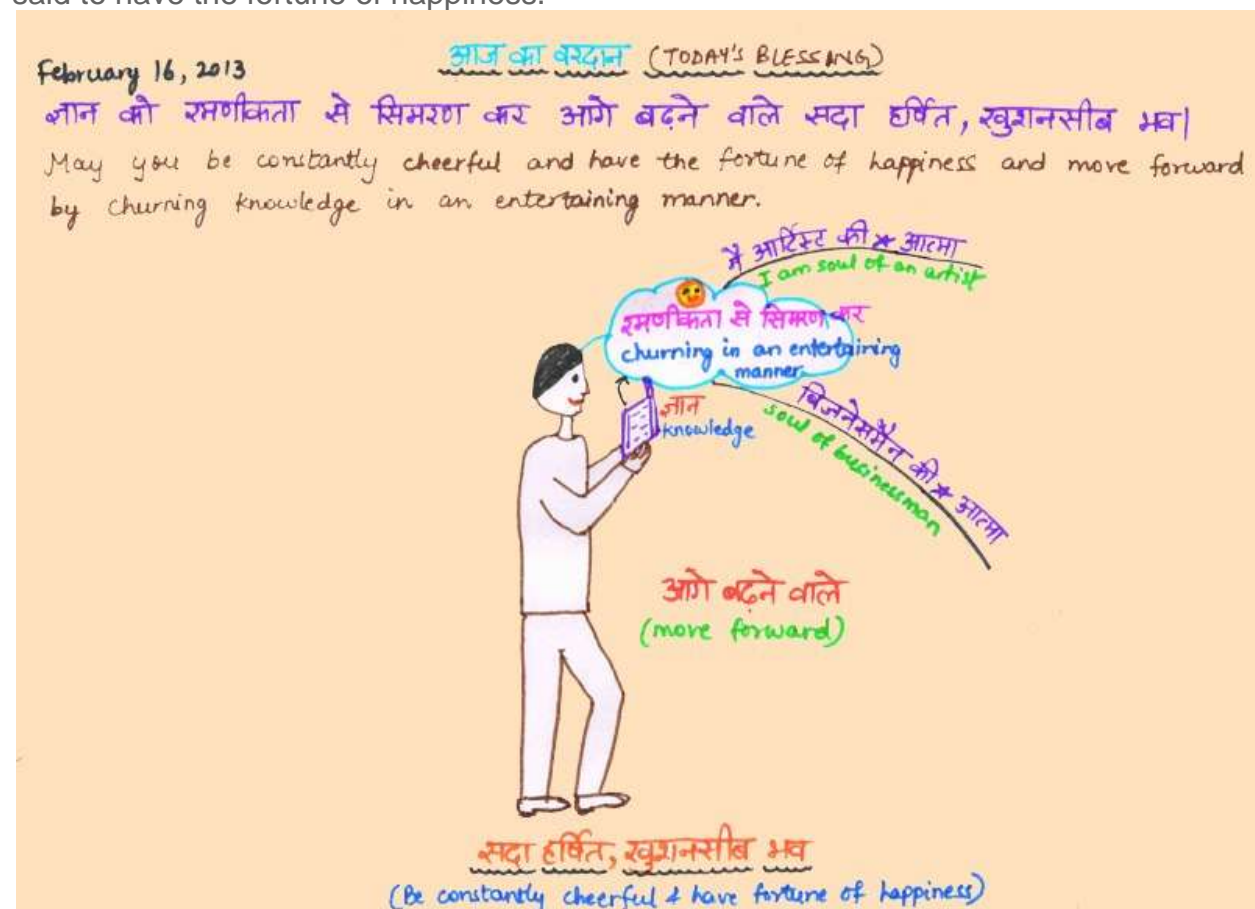 said to have the fortune of happiness.
आज का वरदान (TODAY'S BLESSING)
February 16, 2013
ज्ञान को रमणीकता से सिमरण कर आगे बढ़ने वाले सदा हर्षित, खुशनसीब भव|
May you be constantly cheerful and have the fortune of happiness and move forward
by churning knowledge in an entertaining manner.
मैं आर्टिस्ट की ★ आत्मा
I am soul of an artist
रमणीकता से सिमरण कर
churning in an entertaining
manner
ज्ञान
knowledge
बिजनेसमैन की ★ आत्मा
soul of businessman
आगे बढ़ने वाले
(move forward)
सदा हर्षित, खुशनसीब भव
(Be constantly cheerful & have fortune of happiness)